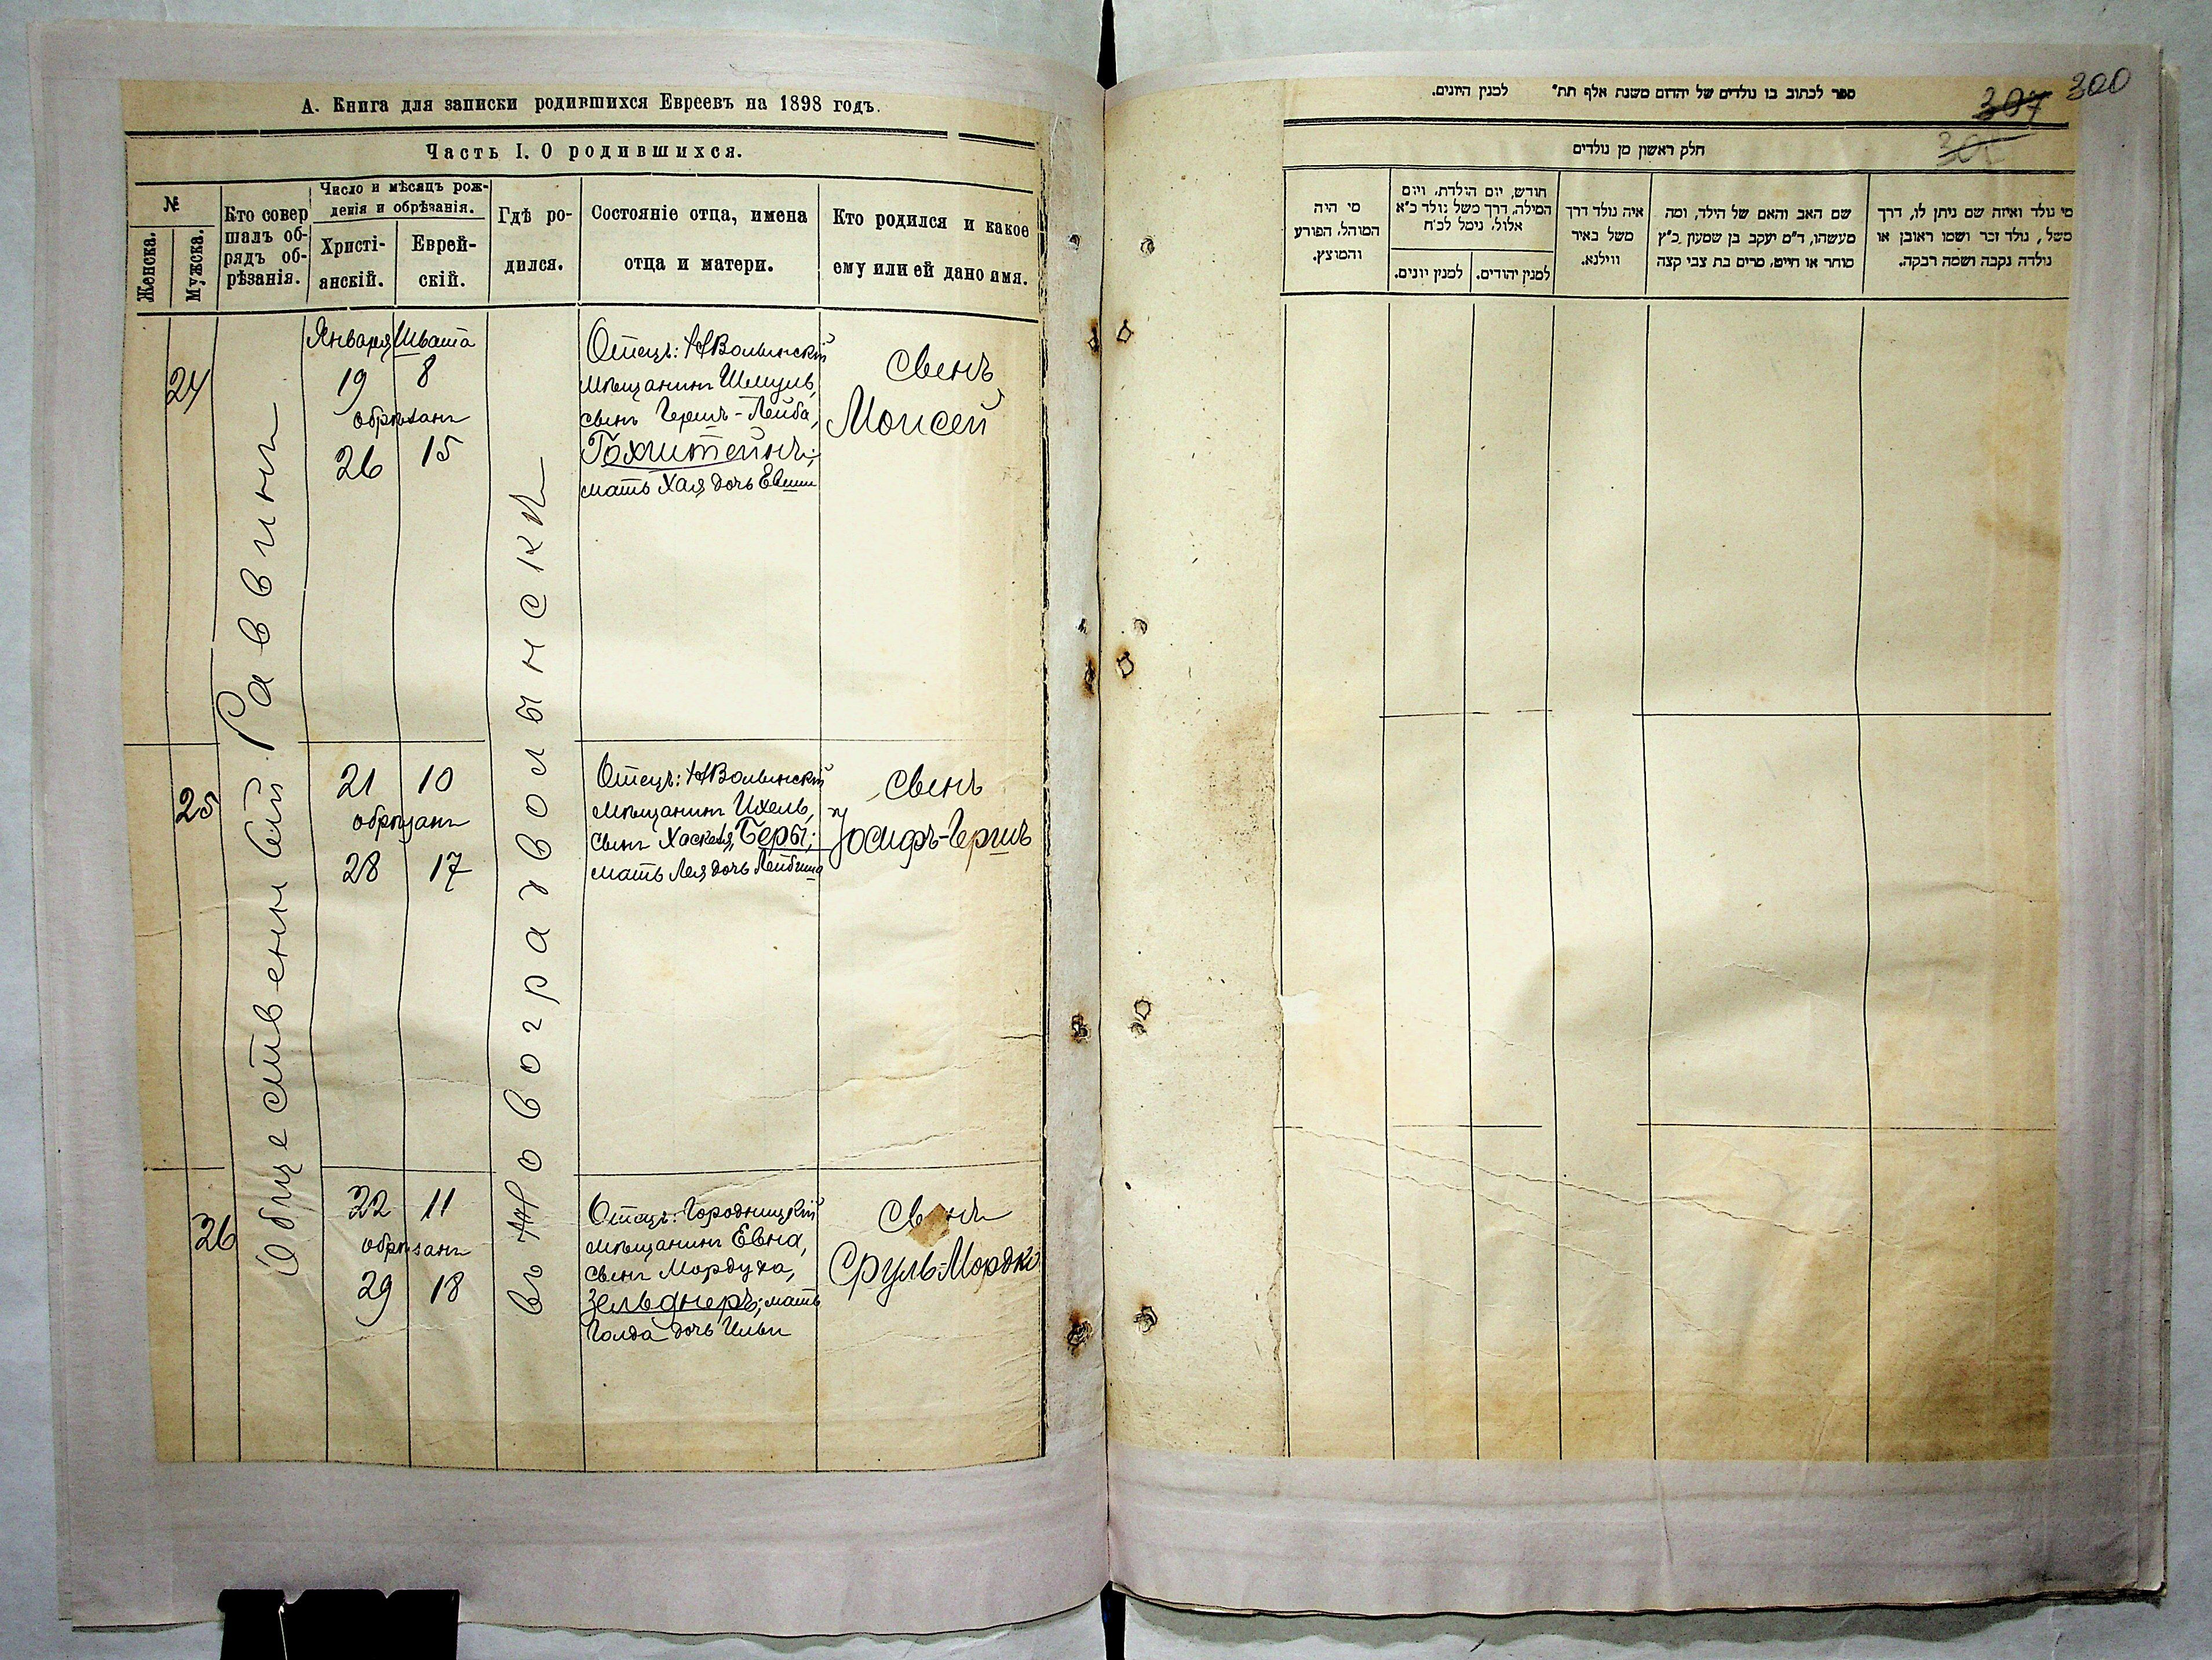 А. Книга для записки родившихся Евреевъ на 1898 годъ.
Часть I. О родившихся.
№
Женска.
Мужска.
Кто совер
шалъ об-
рядъ об-
рѣзанія.
Число и мѣсяцъ рож-
денія и обрѣзанія.
Христі-
анскій.
Еврей-
скій.
Гдѣ ро-
дился.
Состояніе отца, имена
отца и матери.
Кто родился и какое
ему или ей дано имя.
24
Общественный Раввинъ
Января Швата
19 8
обрѣзанъ
26 15
въ Новоградволынскѣ
Отецъ: НВолынскій
мѣщанинъ Шмуль,
сынъ Гершъ-Лейба,
мать Хая дочь
сынъ
Моисей
25
21 10
обрѣзанъ
28 17
Отецъ: НВолынскій
мѣщанинъ Ихель,
сынъ Хаскеля, Беры;
мать Лея дочь
сынъ
Іосифъ-Гершъ
26
22 11
обрѣзанъ
29 18
Отецъ: Городницкій
мѣщанинъ Евна,
сынъ Мордуха,
Зельднеръ; мать
Голда дочь
сынъ
Сруль-Мордко
ספר לכתוב בו נולדים של יהדום משנת אלף תת״ למנין היונים.
307
300
חלק ראשון מן נולדים
מי נולד ואיזה שם ניתן לו, דרך
משל, נולד זכר ושמו ראובן או
נולדה נקבה ושמה רבקה.
שם האב והאם של הילד, ומה
מעשהו, ד״מ יעקב בן שמעון כ״ץ
סוחר או חייט, מרים בת צבי קצה
איה נולד דרך
משל באיר
ווילנא.
חודש, יום הולדת, ויום
המילה, דרך משל נולד כ״א
אלול, נימל לכ״ח
למנין יהודים.
למנין יונים.
מי היה
המוהל, הפורע
והמוצץ.